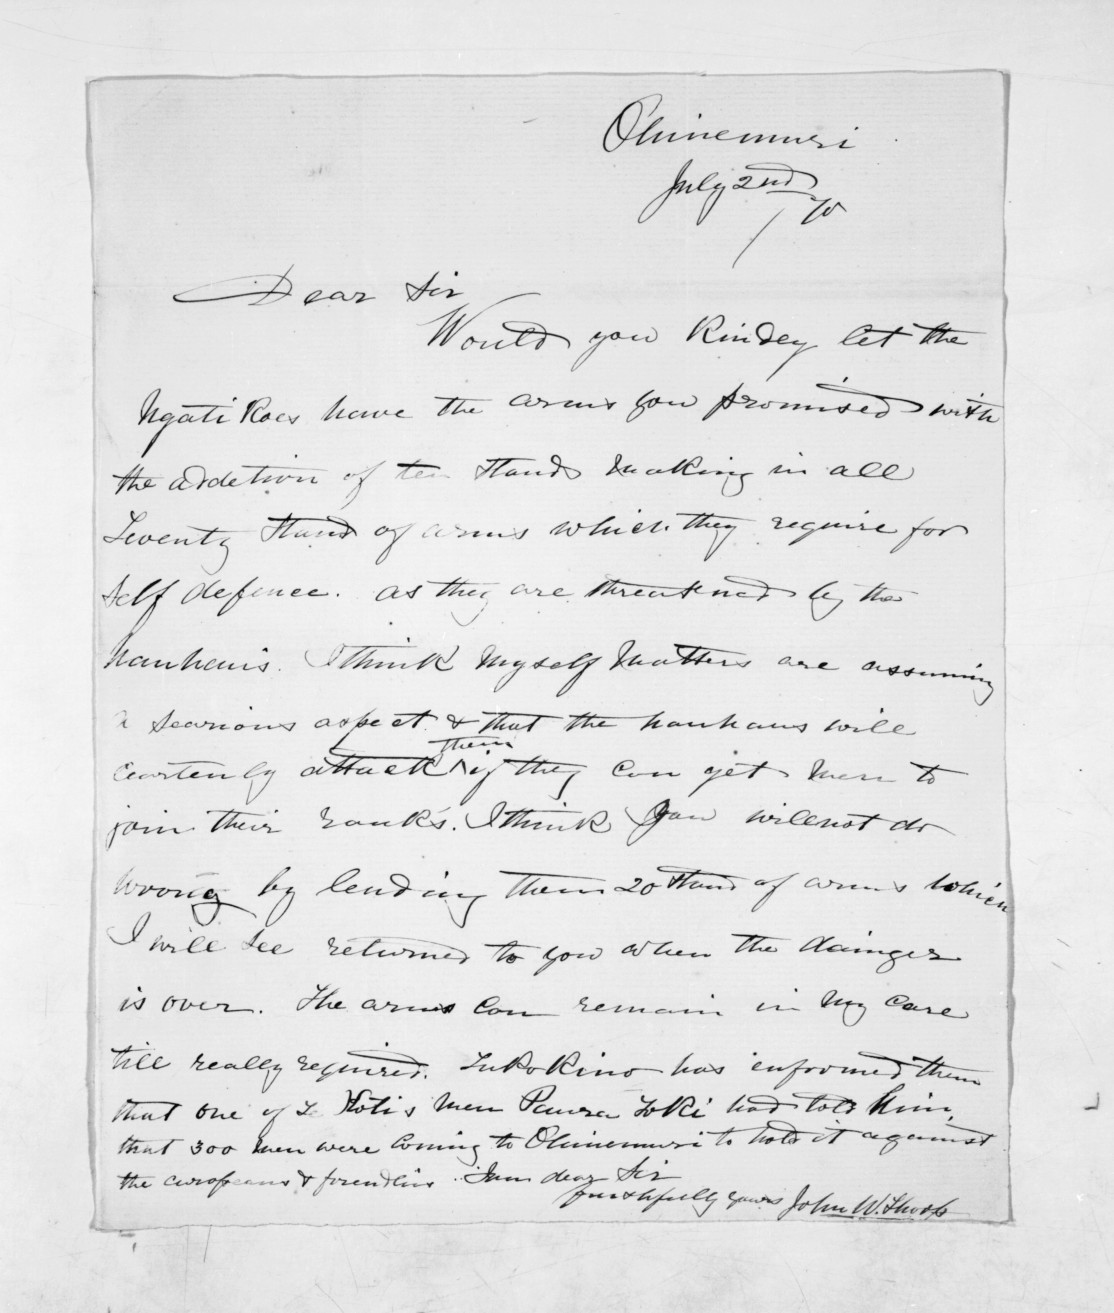 Ohinemuri
July 2nd
/70
Dear Sir
Would you Kindey let the
Ngati Koes have the arms you promised with
the addetion of ten Stands making in all
Twenty Stand of arms which they require for
self defence. as they are threatned by the
hauhaus. I think myself matters are assuming
a searious aspect & that the hauhaus will
ceartenly attack them if they can get men to
join their rank's. I think you will not do
wrong by lending them 20 Stand of arms which
I will see returned to you when the dainger
is over. The arms can remain in my care
till really required. Tukokino has infromed them
that one of Te Kotis men Paura Toki had told him,
that 300 men were coming to Ohinemuri to hold it against
the europeans & freindlis. I am dear Sir
faithfully yours John W. Thorp